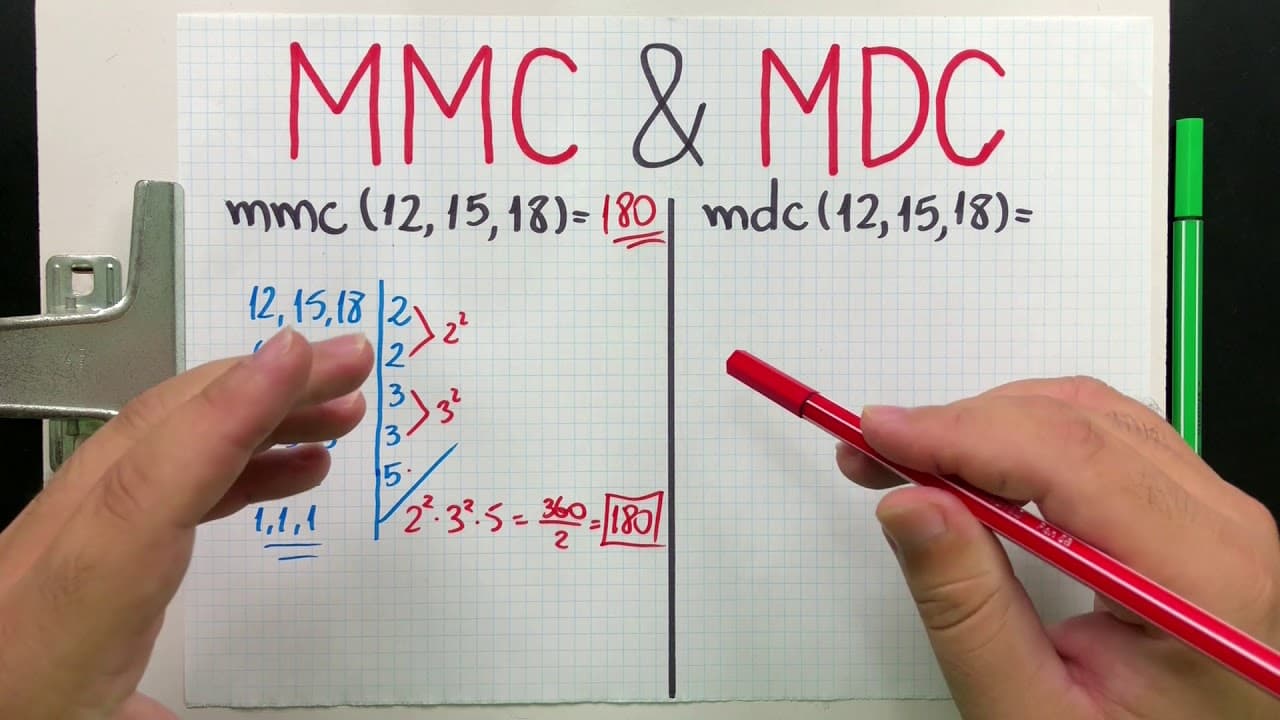 MMC & MDC
mmc (12, 15, 18) = 180
12, 15, 18 | 2
2
> 2²
3
3
> 3²
5
1, 1, 1
2² · 3² · 5 = 360/2 = 180
mdc (12, 15, 18) =